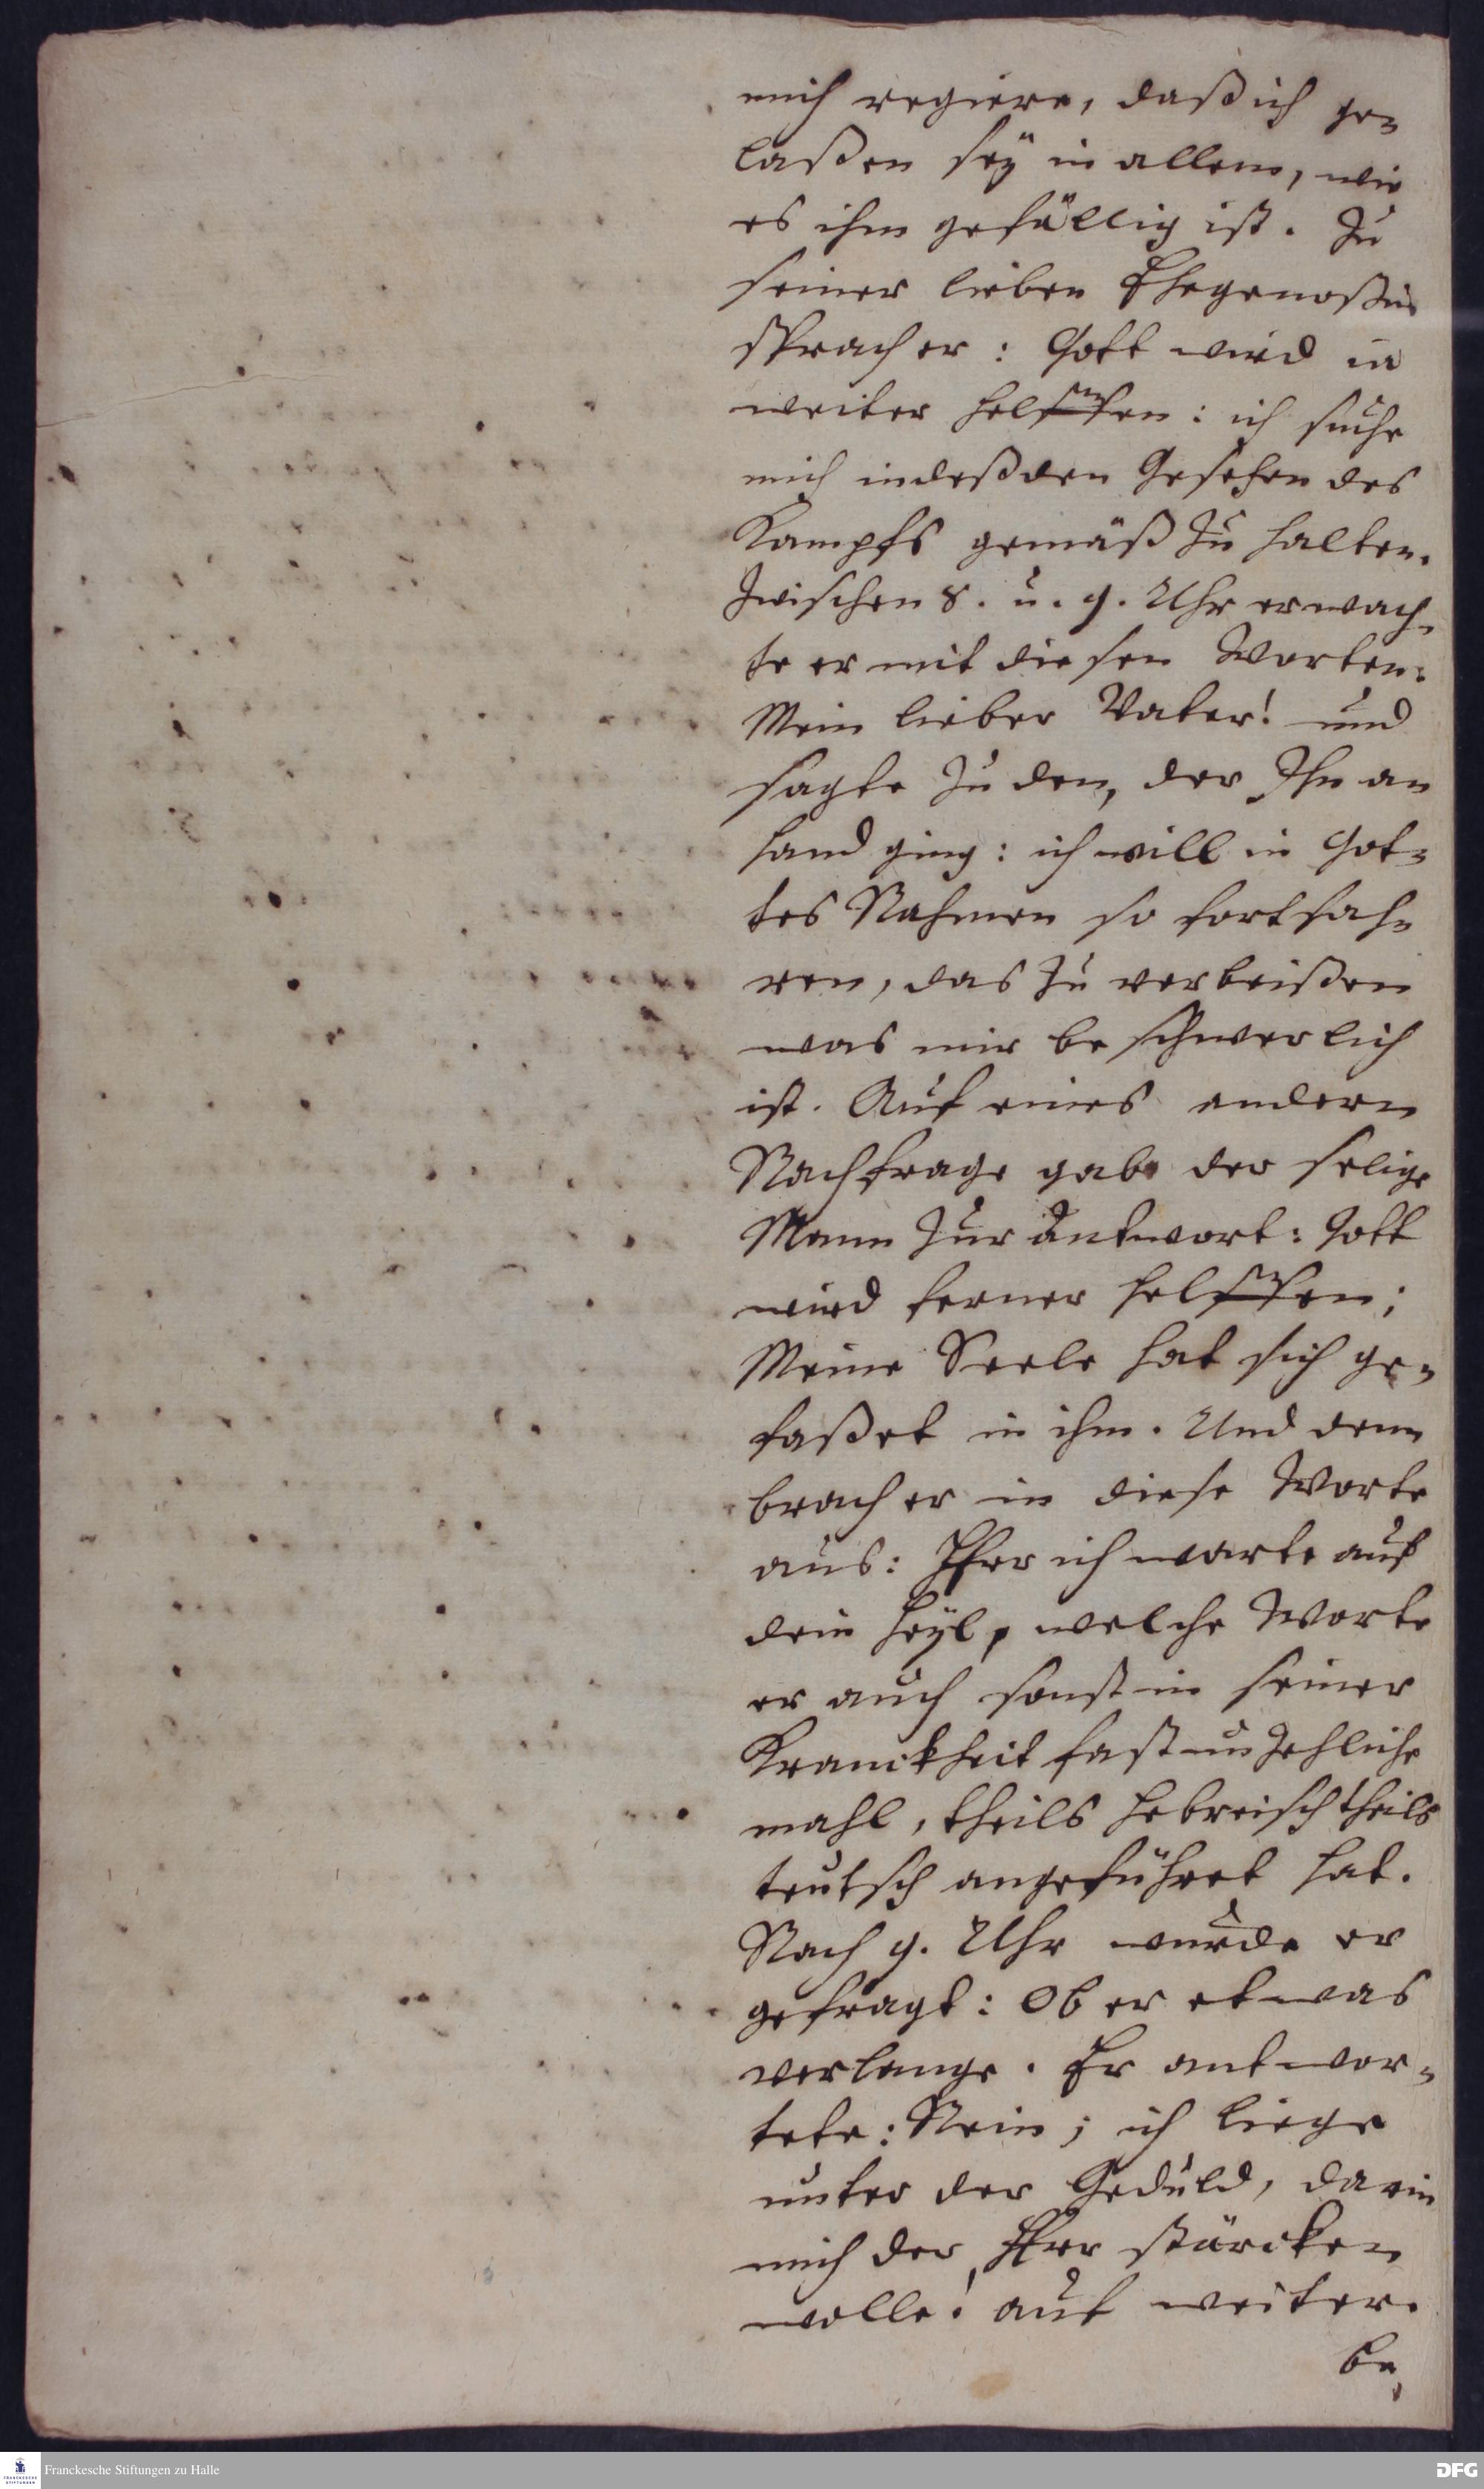 mich regiere, daß ich ge-
laßen seÿ in allem, wie
es ihm gefällig ist. Zu
seiner lieben Ehegenoßin
sprach er: Gott wird ia
weiter helffen: ich suche
mich indeß den Gesetzen des
Kampfs gemäß zu halten.
Zwischen 8. u. 9. Uhr erwach-
te er mit diesen Worten:
Mein lieber Vater! und
sagte zu den, der Ihn an
hand ging: ich will in Got-
tes Nahmen so fortfah-
ren, das zu verbeißen
was mir beschwerlich
ist. Auf eines andern
Nachfrage gab der selige
Mann zur Antwort: Gott
wird ferner helffen;
Meine Seele hat sich ge-
faßet in ihm. Und denn
brach er in diese Worte
aus: Herr ich warte auf
dein Heÿl, welche Worte
er auch sonst in seiner
Kranckheit fast unzehliche
mahl, theils hebreisch theils
teutsch angeführet hat.
Nach 9. Uhr wurde er
gefragt: Ob er etwas
verlange. Er antwor-
tete: Nein; ich liege
unter der Geduld, darin
mich der Herr stärcken
wolle! auf weiter.
be,
Franckesche Stiftungen zu Halle
DFG